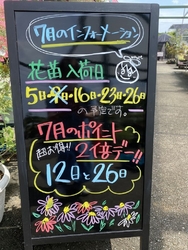 7月のインフォメーション
花苗入荷日
5日・9日・16日・23日・26日
の予定です。
7月のポイント
超お得!! 2倍デー!!
12日と26日